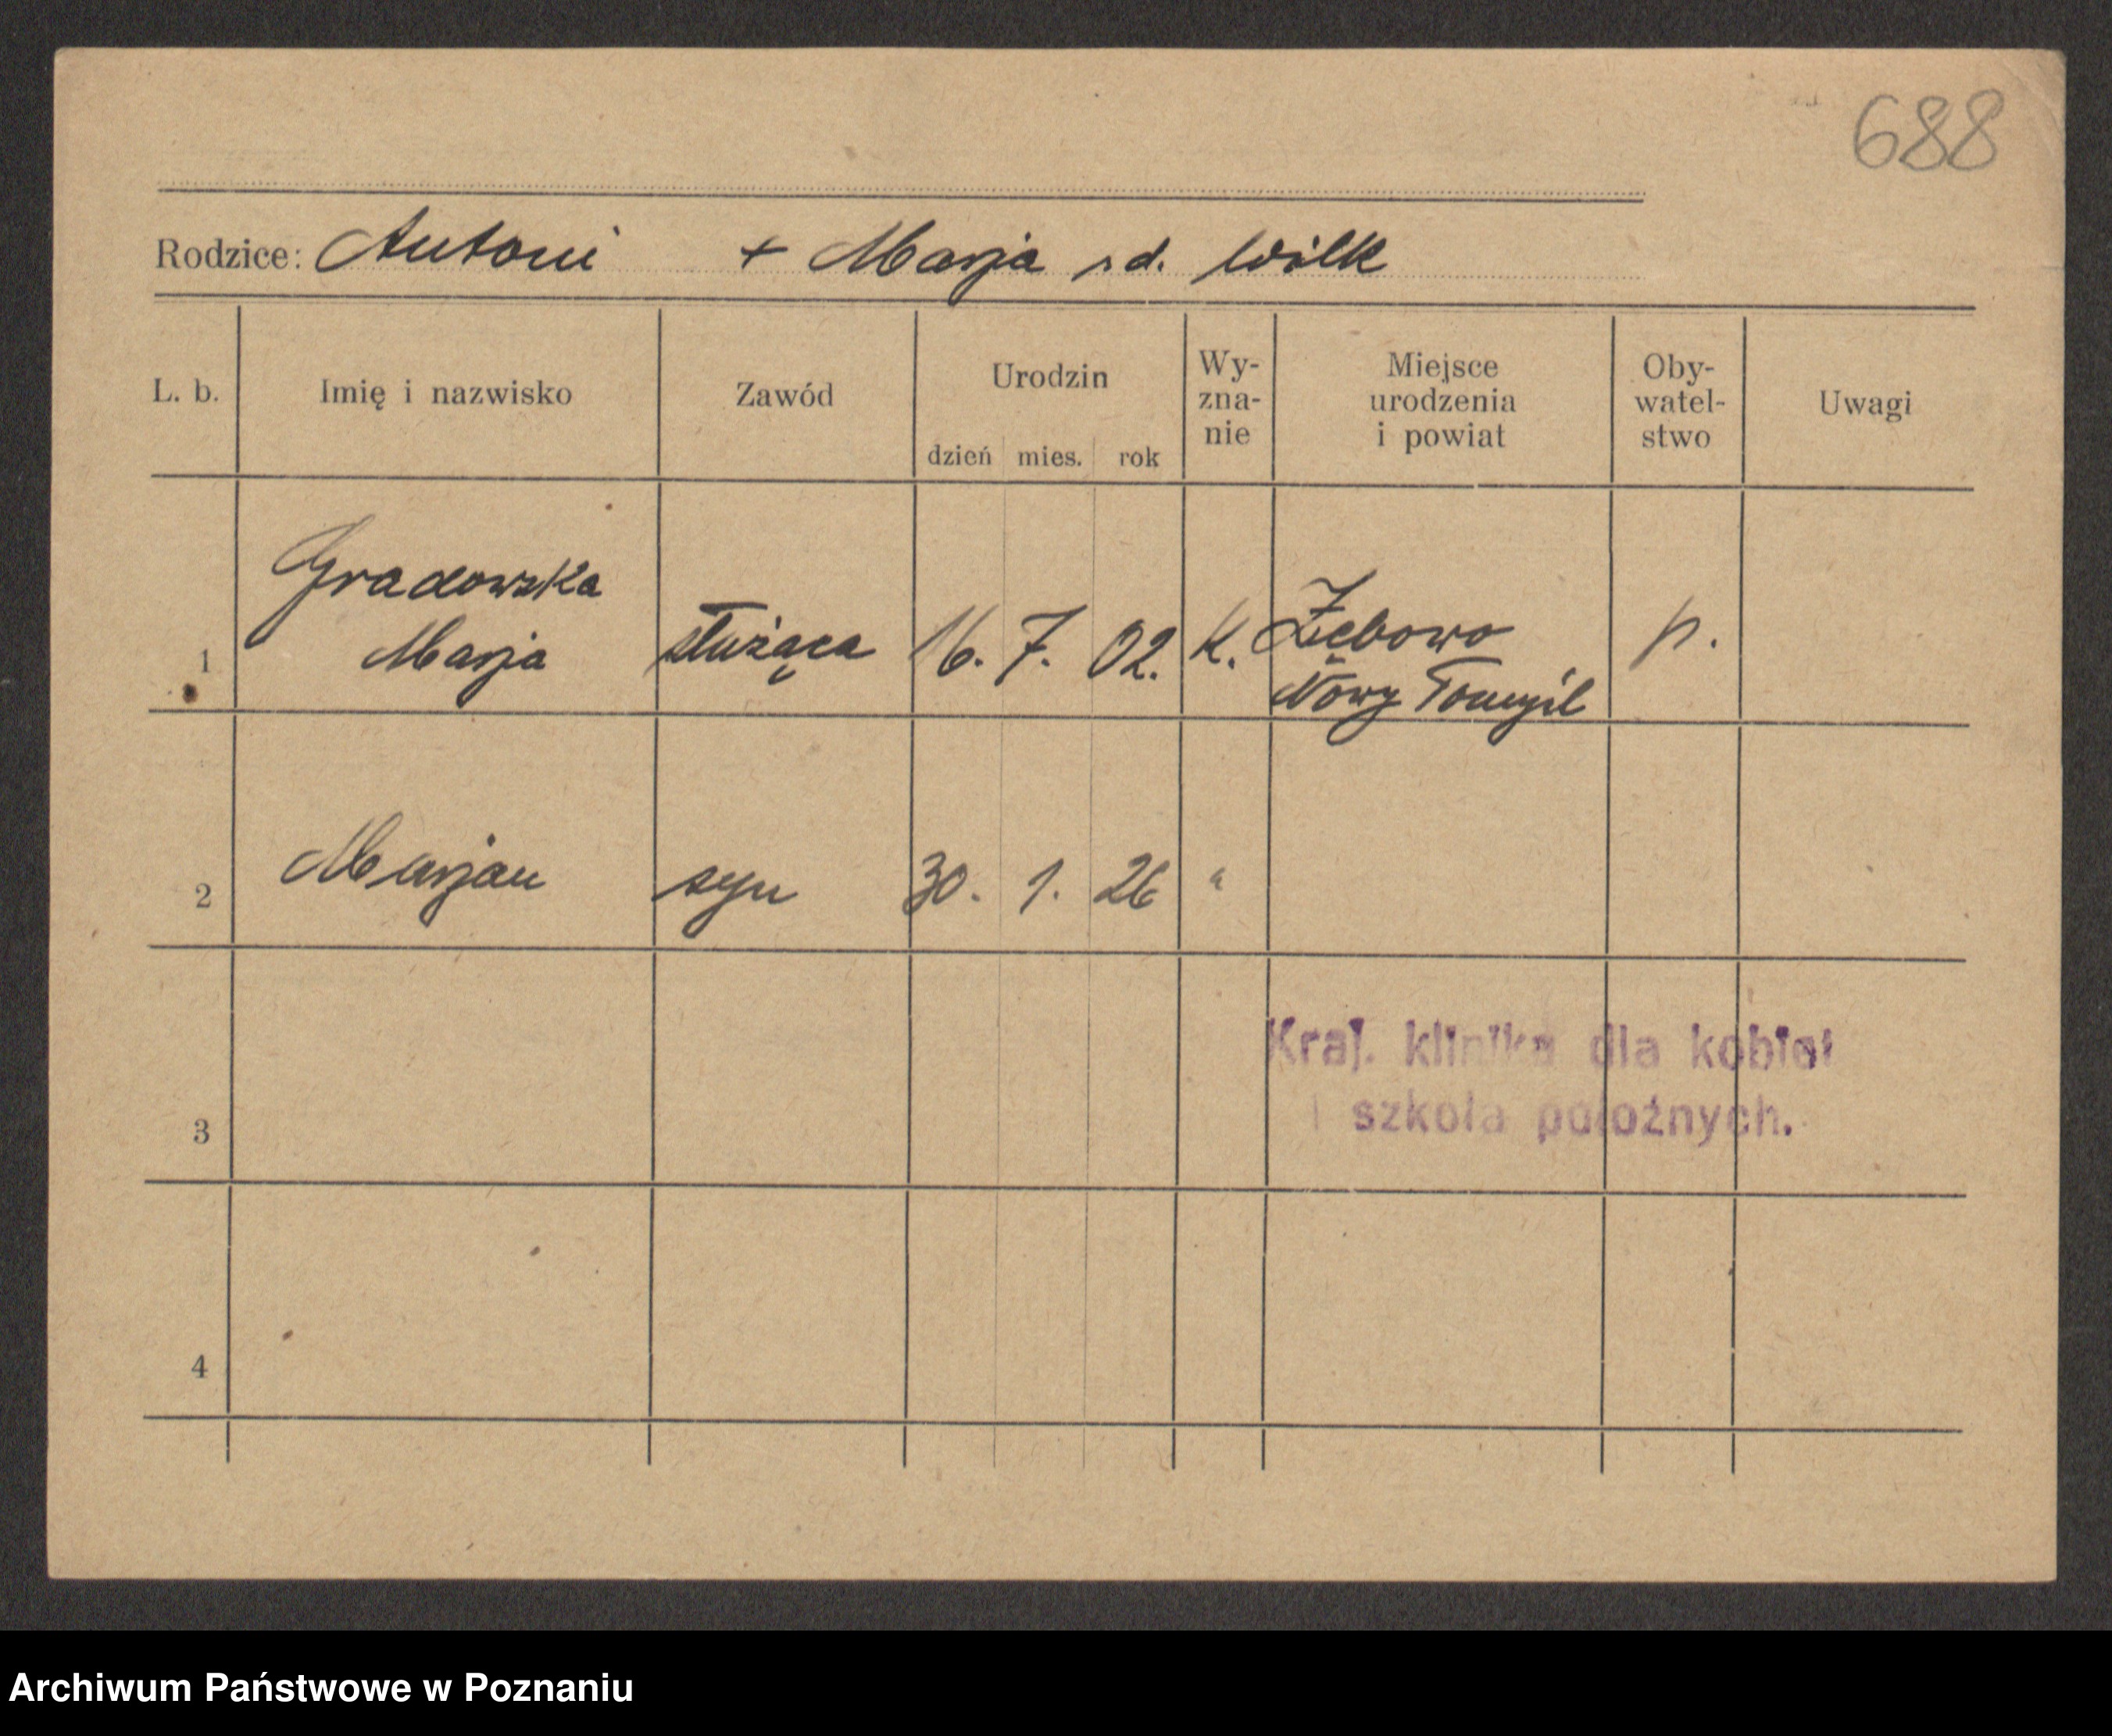 688
Rodzice: Antoni + Marja r d. Wilk
L. b. Imię i nazwisko Zawód Urodzin dzień mies. rok Wy-zna-nie Miejsce urodzenia i powiat Oby-watel-stwo Uwagi
Gradowska
1 Marja służąca 16. 7. 02. K. Zębowo p.
Nowy Tomyśl
2 Marjan syn 30. 1. 26 "
Kraj. klinika dla kobiet
i szkoła położnych.
3
4
Archiwum Państwowe w Poznaniu